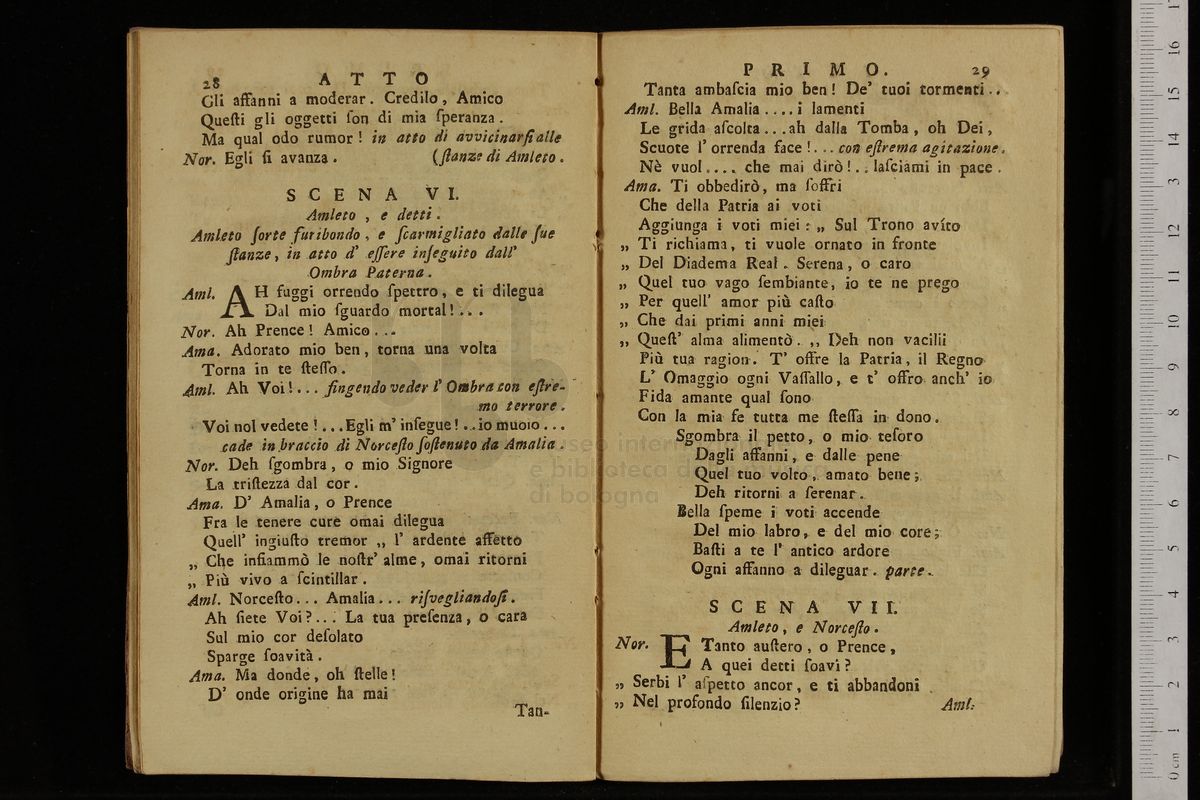 28 ATTO
Gli affanni a moderar. Credilo, Amico
Queſti gli oggetti ſon di mia ſperanza.
Ma qual odo rumor! in atto di avvicinarſi alle
Nor. Egli ſi avanza. (ſtanze di Amleto.
SCENA VI.
Amleto, e detti.
Amleto ſorte furibondo, e ſcarmigliato dalle ſue
ſtanze, in atto d' eſſere inſeguito dall'
Ombra Paterna.
Aml. AH fuggi orrendo ſpettro, e ti dilegua
Dal mio ſguardo mortal!...
Nor. Ah Prence! Amico...
Ama. Adorato mio ben, torna una volta
Torna in te ſteſſo.
Aml. Ah Voi!... fingendo veder l' Ombra con eſtre-
mo terrore.
Voi nol vedete!...Egli m' inſegue!..io muoio...
cade in braccio di Norceſto ſoſtenuto da Amalia.
Nor. Deh ſgombra, o mio Signore
La triſtezza dal cor.
Ama. D' Amalia, o Prence
Fra le tenere cure omai dilegua
Quell' ingiuſto tremor ,, l' ardente affetto
„ Che infiammò le noſtr' alme, omai ritorni
„ Più vivo a ſcintillar.
Aml. Norceſto... Amalia... riſvegliandoſi.
Ah ſiete Voi?... La tua preſenza, o cara
Sul mio cor deſolato
Sparge ſoavità.
Ama. Ma donde, oh ſtelle!
D' onde origine ha mai
Tan-
PRIMO. 29
Tanta ambaſcia mio ben! De' tuoi tormenti..
Aml. Bella Amalia....i lamenti
Le grida aſcolta...ah dalla Tomba, oh Dei,
Scuote l' orrenda face!... con eſtrema agitazione.
Nè vuol.... che mai dirò!.. laſciami in pace.
Ama. Ti obbedirò, ma ſoffri
Che della Patria ai voti
Aggiunga i voti miei: „ Sul Trono avíto
„ Ti richiama, ti vuole ornato in fronte
„ Del Diadema Real. Serena, o caro
„ Quel tuo vago ſembiante, io te ne prego
„ Per quell' amor più caſto
„ Che dai primi anni miei
„ Queſt' alma alimentò. ,, Deh non vacilii
Più tua ragion. T' offre la Patria, il Regno
L' Omaggio ogni Vaſſallo, e t' offro anch' io
Fida amante qual ſono
Con la mia fe tutta me ſteſſa in dono.
Sgombra il petto, o mio teſoro
Dagli affanni, e dalle pene
Quel tuo volto, amato bene;
Deh ritorni a ſerenar.
Bella ſpeme i voti accende
Del mio labro, e del mio core;
Baſti a te l' antico ardore
Ogni affanno a dileguar. parte.
SCENA VII.
Amleto, e Norceſto.
Nor. E Tanto auſtero, o Prence,
A quei detti ſoavi?
„ Serbi l' aſpetto ancor, e ti abbandoni
„ Nel profondo ſilenzio?
Aml.